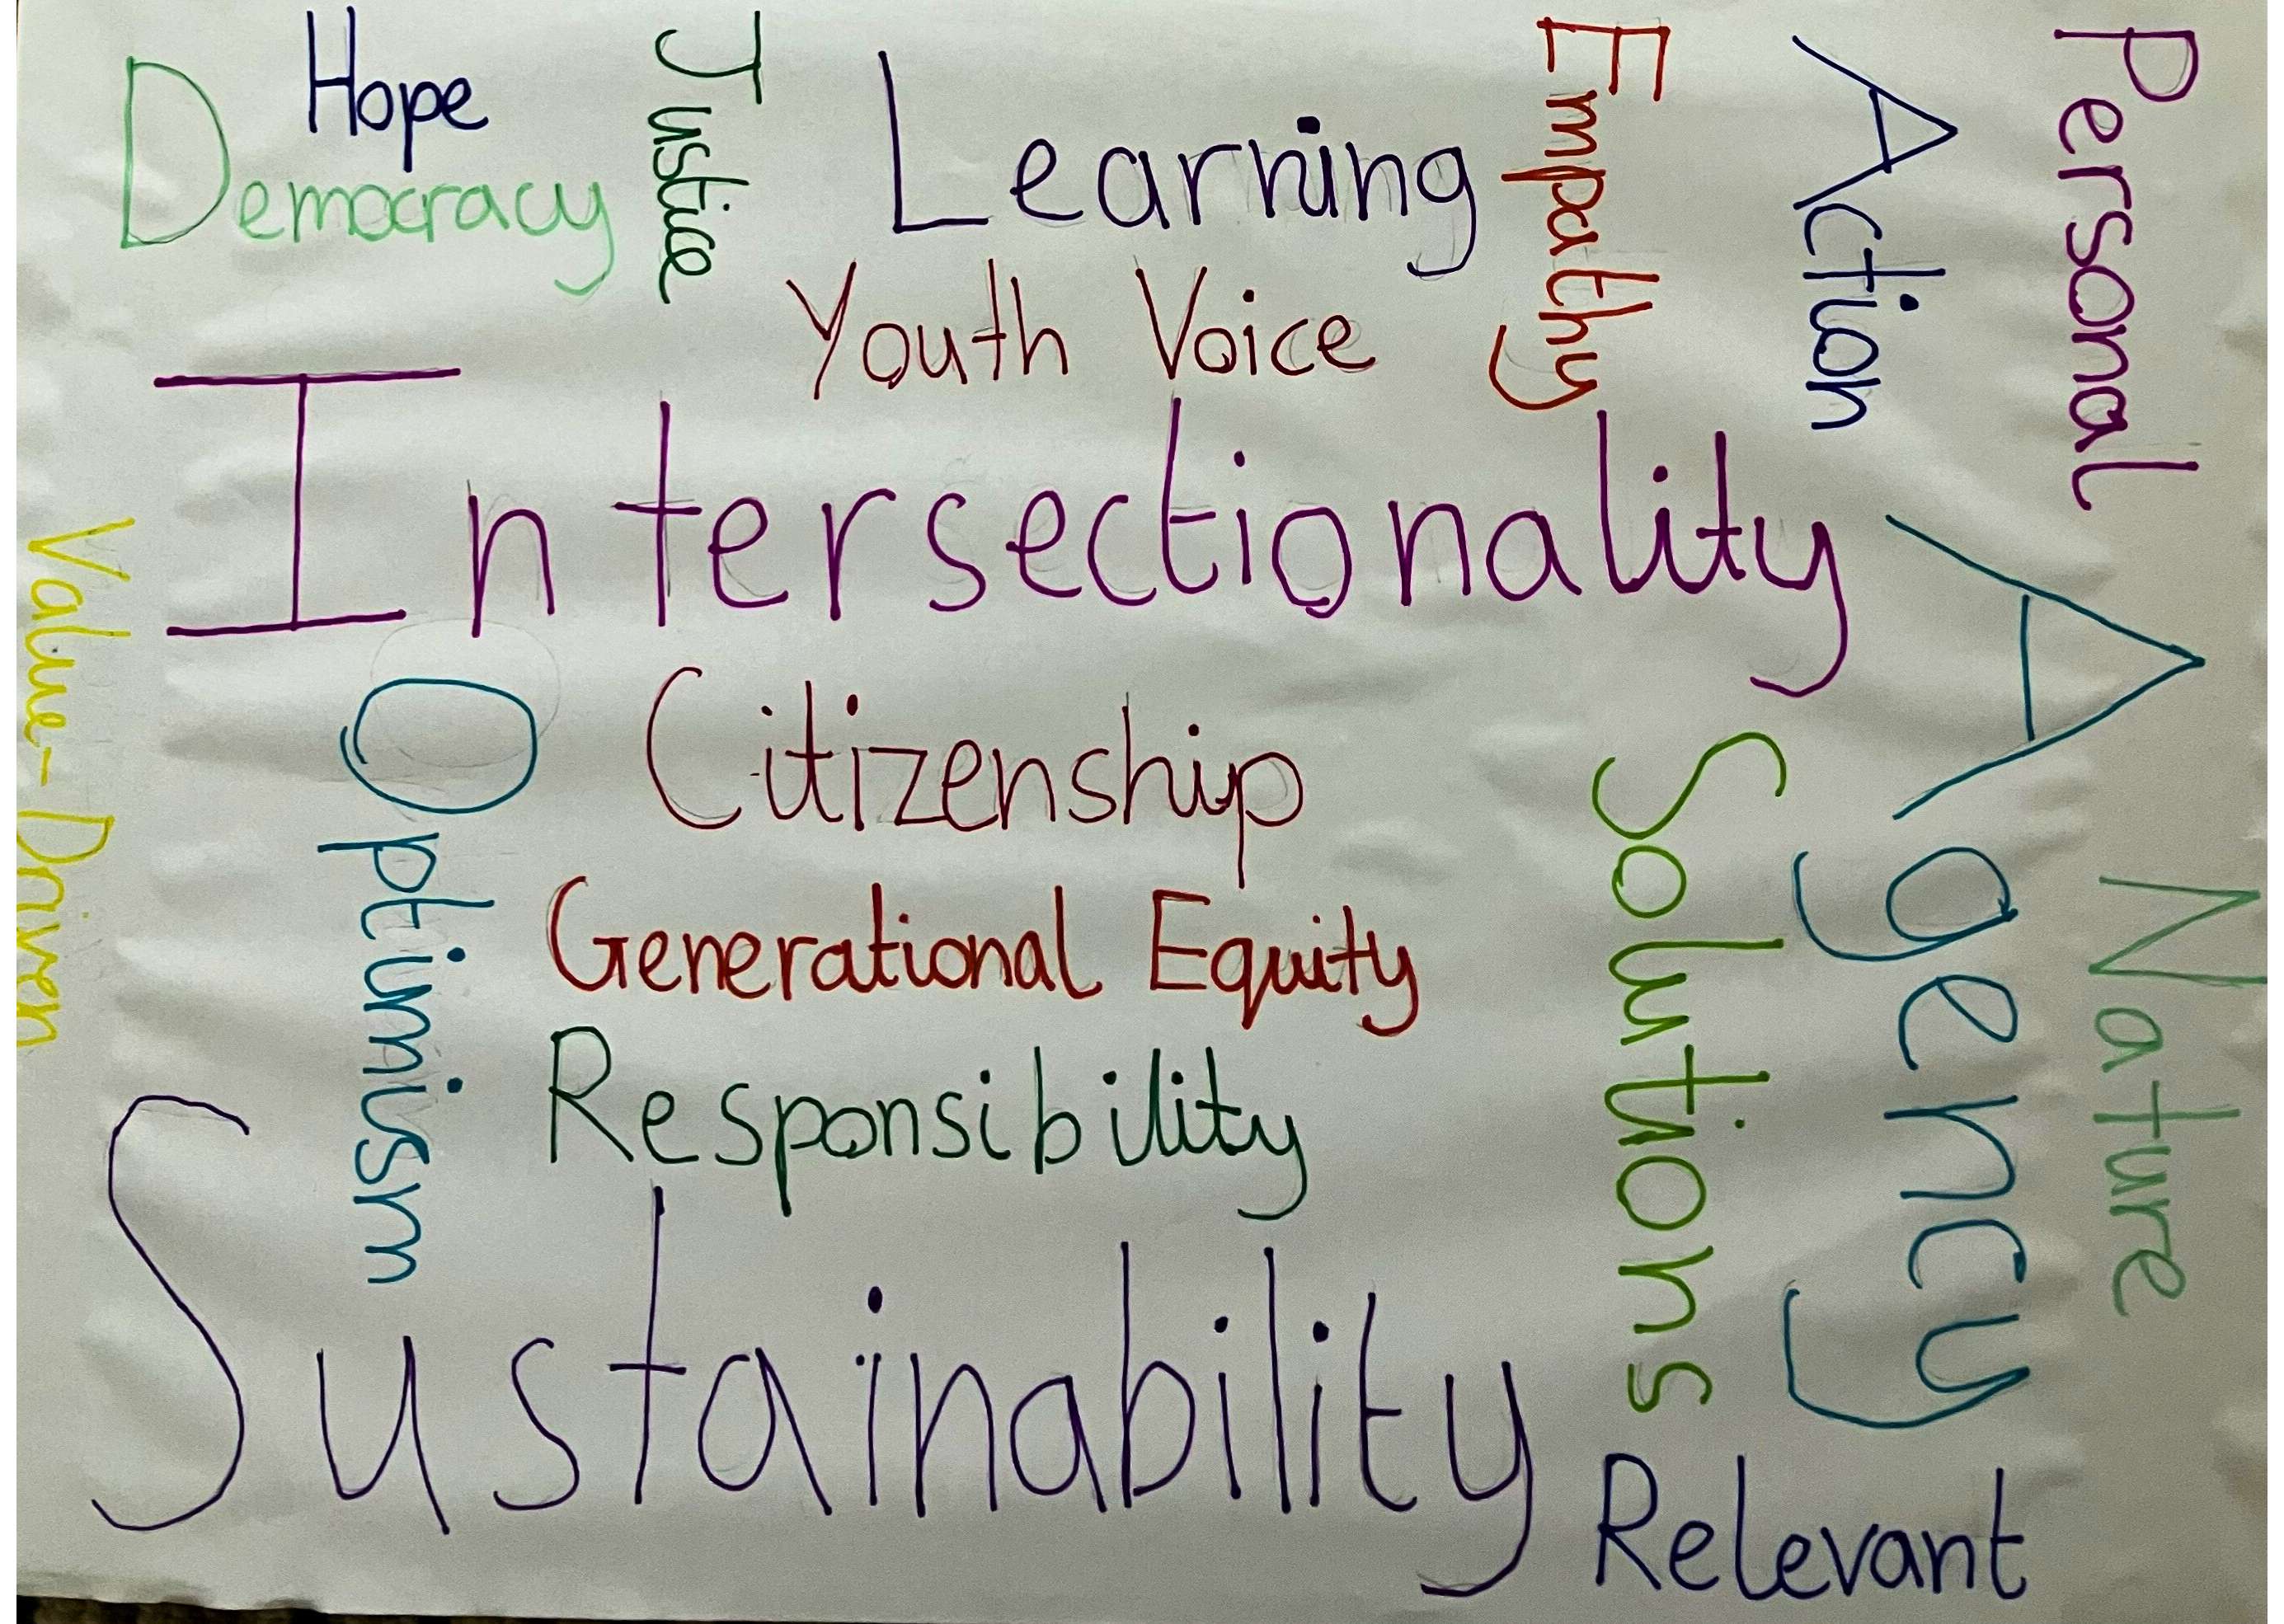 Hope
Democracy
Justice
Learning
Youth Voice
Empathy
Action
Personal
Intersectionality
Value-Driven
Optimism
Citizenship
Generational Equity
Responsibility
Solutions
Agency
Nature
Sustainability
Relevant